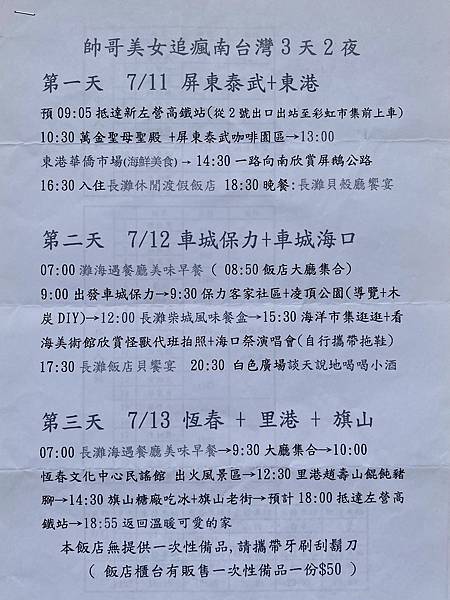 帥哥美女追瘋南台灣3天2夜
第一天 7/11 屏東泰武+東港
預 09:05 抵達新左營高鐵站(從2號出口出站至彩虹市集前上車)
10:30 萬金聖母聖殿 +屏東泰武咖啡園區→13:00
東港華僑市場(海鮮美食)→ 14:30 一路向南欣賞屏鵝公路
16:30 入住長灘休閒渡假飯店 18:30 晚餐:長灘貝殼廳饗宴
第二天 7/12 車城保力+車城海口
07:00 灘海遇餐廳美味早餐 ( 08:50 飯店大廳集合)
9:00 出發車城保力→9:30 保力客家社區+凌頂公園(導覽+木
炭DIY)→12:00 長灘柴城風味餐盒→15:30 海洋市集逛逛+看
海美術館欣賞怪獸代班拍照+海口祭演唱會(自行攜帶拖鞋)
17:30 長灘飯店貝饗宴 20:30 白色廣場談天說地喝喝小酒
第三天 7/13 恆春 + 里港 + 旗山
07:00 長灘海遇餐廳美味早餐→9:30 大廳集合→10:00
恆春文化中心民謠館 出火風景區→12:30 里港趙壽山餛飩豬
腳→14:30 旗山糖廠吃冰+旗山老街→預計 18:00 抵達左營高
鐵站→18:55 返回溫暖可愛的家
本飯店無提供一次性備品,請攜帶牙刷刮鬍刀
( 飯店櫃台有販售一次性備品一份$50 )